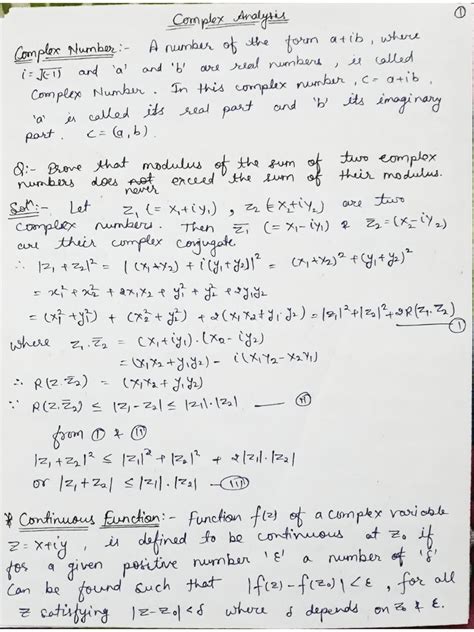 Complex Analysis
①
Complex Number:- A number of the form a+ib, where
i=√(-1) and 'a' and 'b' are real numbers, is called
Complex Number. In this complex number, c = a+ib,
'a' is called its real part and 'b' its imaginary
part. C=(a,b).
Q:- Prove that modulus of the sum of two complex
numbers does not never exceed the sum of their modulus.
Solⁿ:- Let z₁ (= x₁+iy₁), z₂ (= x₂+iy₂) are two
complex numbers. Then z̄₁ (= x₁-iy₁) & z̄₂=(x₂-iy₂)
are their complex conjugate.
∴ |z₁+z₂|² = |(x₁+x₂) + i(y₁+y₂)|² = (x₁+x₂)² + (y₁+y₂)²
= x₁² + x₂² + 2x₁x₂ + y₁² + y₂² + 2y₁y₂
= (x₁²+y₁²) + (x₂²+y₂²) + 2(x₁x₂+y₁y₂) = |z₁|²+|z₂|²+2R(z₁.z̄₂)
—①
where z₁.z̄₂ = (x₁+iy₁).(x₂-iy₂)
= (x₁x₂+y₁y₂) - i(x₁y₂-x₂y₁)
∴ R(z.z̄₂) = (x₁x₂+y₁y₂)
∵ R(z.z̄₂) ≤ |z₁-z₂| ≤ |z₁|.|z₂| — ⑪
from ① & ⑪
|z₁+z₂|² ≤ |z₁|²+|z₂|² + 2|z₁|.|z₂|
or |z₁+z₂| ≤ |z₁|.|z₂| —(iii)
* Continuous Function:- Function f(z) of a complex variable
z=x+iy, is defined to be continuous at z₀ if
for a given positive number 'ε' a number of 'δ'
can be found such that |f(z)-f(z₀)|<ε, for all
z satisfying |z-z₀|<δ where δ depends on z₀ & ε.